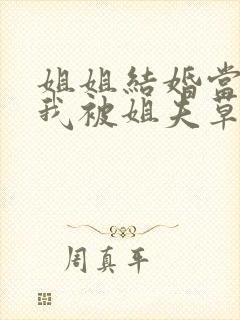 姐姐結婚當
我被姐夫草
周真平